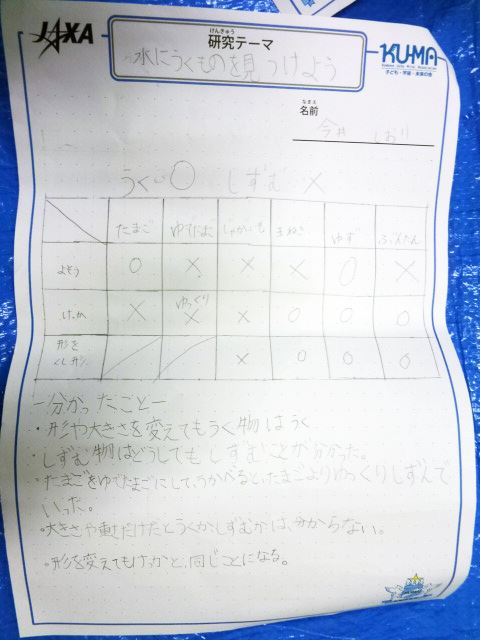 JAXA
けんきゅう
研究テーマ
水にうくものを見つけよう
KUMA
子ども・宇宙・未来の会
なまえ
名前
今井 しおり
うく…○ しずむ…×
たまご ゆでたまご じゃがいも たまねぎ ゆず ぶんたん
よそう ○ × × × ○ ×
けっか × ゆっくり × × ○ ○ ○
形を
くし形 × ○ ○ ○
ー分かったことー
・形や大きさを変えてもうく物はうく
・しずむ物はどうしてもしずむことが分かった。
・たまごをゆでたまごにして、うかべると、たまごよりゆっくりしずんで
いった。
・大きさや重さだけだとうくかしずむかは、分からない。
・形を変えてもけっかと、同じことになる。